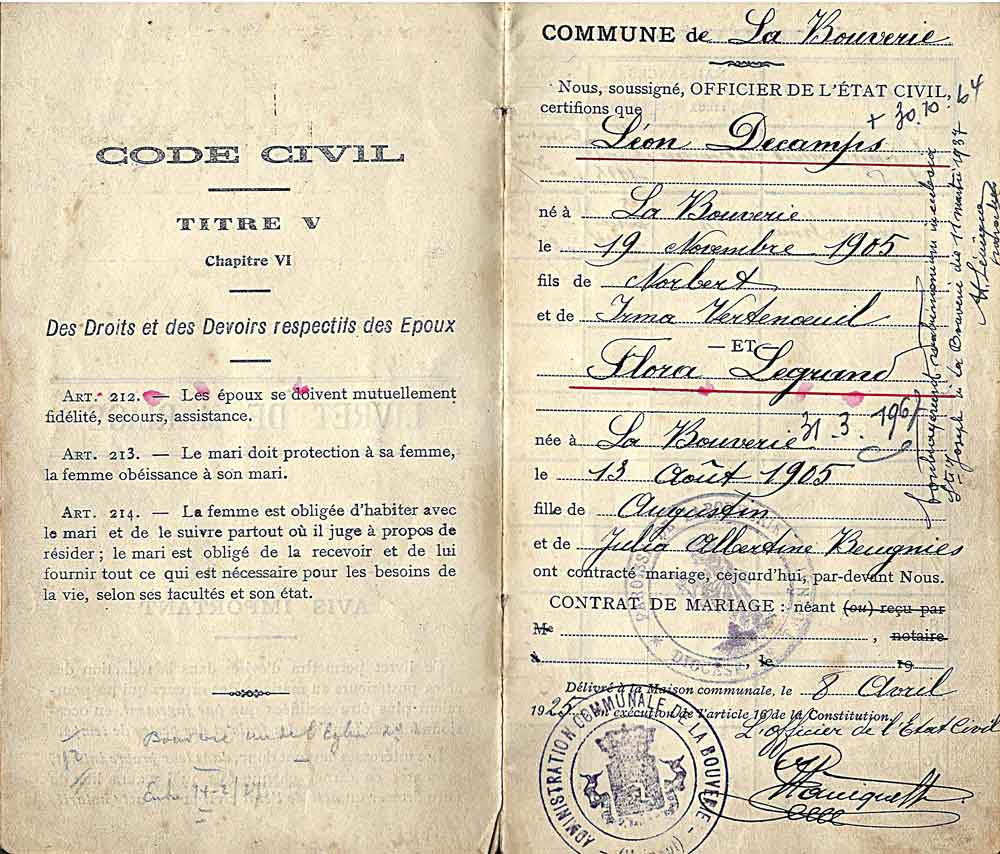 CODE CIVIL
TITRE V
Chapitre VI
Des Droits et des Devoirs respectifs des Epoux
ART. 212. — Les époux se doivent mutuellement
fidélité, secours, assistance.
ART. 213. — Le mari doit protection à sa femme,
la femme obéissance à son mari.
ART. 214. — La femme est obligée d'habiter avec
le mari et de le suivre partout où il juge à propos de
résider ; le mari est obligé de la recevoir et de lui
fournir tout ce qui est nécessaire pour les besoins de
la vie, selon ses facultés et son état.
COMMUNE de La Bouverie
Nous, soussigné, OFFICIER DE L'ÉTAT CIVIL,
certifions que
+ 30.10.64
Léon Decamps
né à La Bouverie
le 19 Novembre 1905
fils de Norbert
et de Irma Vertenoeuil
— ET —
Flora Legrand
31.3.1967
née à La Bouverie
le 13 Août 1905
fille de Augustin
et de Julia Albertine Beugnies
ont contracté mariage, cejourd'hui, par-devant Nous.
CONTRAT DE MARIAGE : néant (ou) reçu par
Me , notaire
à , le 19
Délivré à la Maison communale, le 8 Avril
1925, en exécution de l'article 16 de la Constitution.
L'officier de l'Etat Civil
ADMINISTRATION COMMUNALE DE LA BOUVERIE
DIOCESE
St Joseph La Bouverie die 11 martii 1937